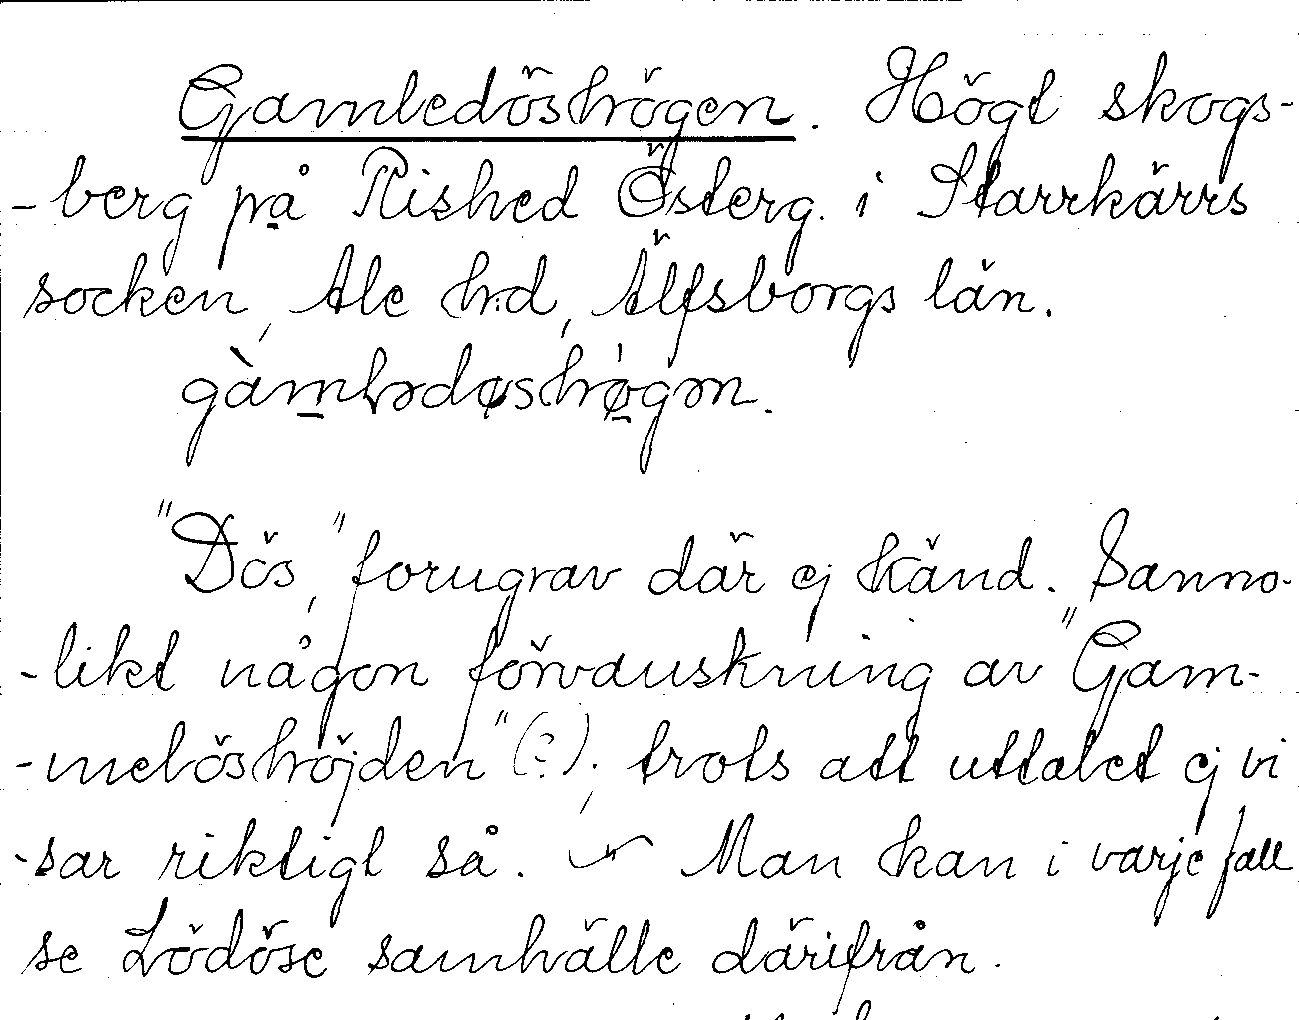 Gamledöshögen. Högt skogs-
-berg på Rished Österg. i Starrkärrs
socken, Ale hd, Älfsborgs län.
gàmlədøshø̀gən.
"Dös," forngrav där ej känd. Sanno-
-likt någon förvanskning av "Gam-
-melöshöjden" (?); trots att uttalet ej vi
-sar riktigt så. — Man kan i varje fall
se Lödöse samhälle därifrån.